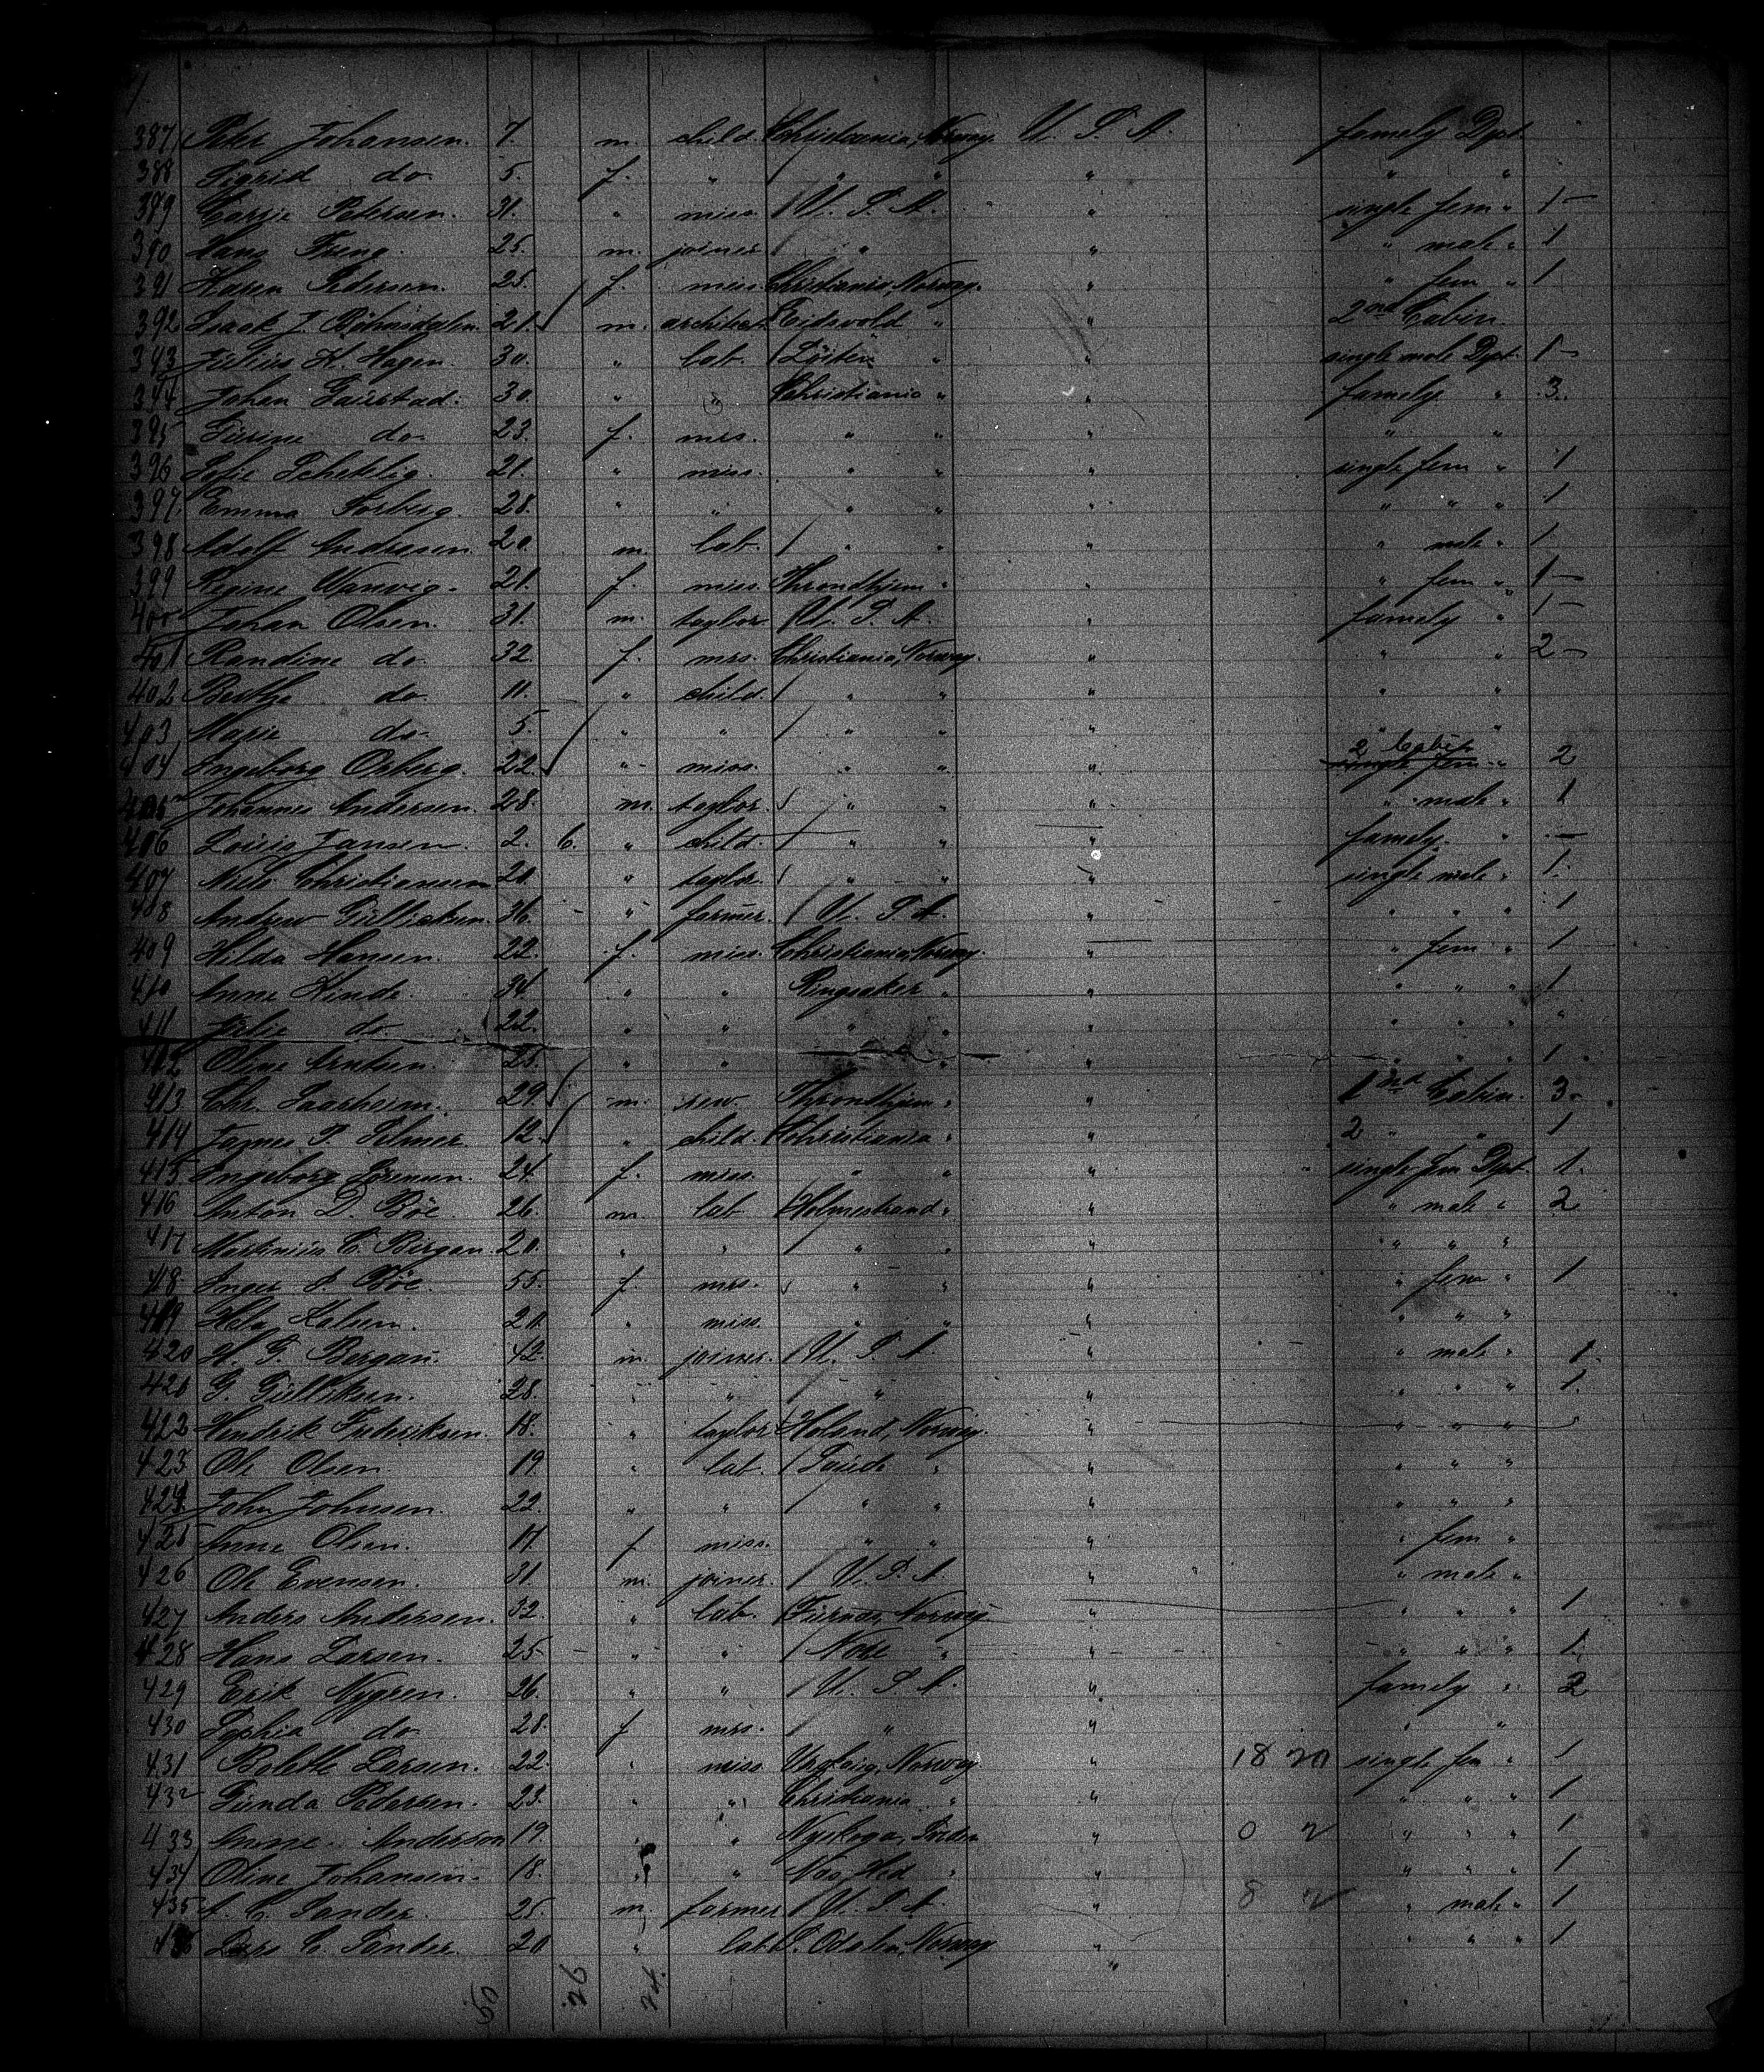 387 Peter Johansen. 7. m. child. Christiania, Norway. U. S. A. famely Dpt.
388 Sigrid do. 5. f. " " " " " "
389 Carrie Petersen. 31. " miss. U. S. A. " single fem " 1 —
390 Hans Treng. 25. m. joiner " " " male " 1
391 Karen Pedersen. 25. f. miss. Christiania, Norway. " " fem " 1
392 Isack J. 21. m. architect. Eidsvold " " 2nd Cabin.
393 Julius K. Hagen. 30. " lab. Löiten " " single male Dpt. 1 —
394 Johan Gaustad. 30. " " Christiania " " famely " 3.
395 do. 23. f. mrs. " " " " "
396 Sofie Schetelig. 21. " miss. " " " single fem " 1
397. Emma Forberg. 28. " " " " " " " " 1
398 Adolf Andresen. 20. m. lab. " " " " male " 1
399 Regine Wanvig. 21. f. miss. Throndhjem " " " fem " 1 —
400 Johan Olsen. 31. m. taylor. U. S. A. " famely " 1 —
401 Randine do. 32. f. mrs. Christiania, Norway. " " " 2 —
402 Berthe do. 11. " child. " " " " "
403 Marie do. 5. " " " " " " "
404 Ingeborg Osberg. 22. " miss. " " " 2 Cabin single fem " 2
405 Johannes Andersen. 28. m. taylor. " " " " male " 1
406 Louis Jansen. 2. 6. " child. " " " famely. " —
407 Niels Christiansen 20. " taylor. " " " single male " 1.
408 Andrew Gulliksen. 36. " farmer. U. S. A. " " " " 1
409 Hilda Hansen. 22. f. miss. Christiania, Norway. " " fem " 1
410 Anne Kinde. 34. " " Ringsaker " " " " " 1
411 Julie do. 22. " " " " " " " " "
412 Oline Arntsen. 25. " " " " " " " " 1
413 Chr. Saarheim. 29. m. rew. Throndhjem " " 1nd Cabin. 3.
414 P. Selmer. 12. " child. Christiania " " 2 " " 1
415 Ingeborg Sörensen. 24. f. miss. " " " single fem Dpt. 1.
416 Anton D. Böe. 26. m. lab. Holmestrand " " " male " 2
417 Martinius C. Bergan. 20. " " " " " " " "
418 Inger J. Böe. 55. f. mrs. " " " " fem " 1
419 20. " miss. " " " " " "
420 H. G. Bergan. 42. m. joiner. U. S. A. " " male " 1.
421 G. Gulliksen. 28. " " " " " " " 1.
422 Hendrik Frederiksen. 18. " taylor Holand, Norway. " " " "
423 Ole Olsen 19. " lab. " " " " "
424 John Johnsen. 22. " " " " " " " "
425 Anne Olsen. f miss. " " " " fem "
426 Ole Evensen. 31. m. joiner. U. S. A. " " male "
427 Anders Andersen. 32. " lab. Furnes, Norway " " " " 1
428 Hans Larsen. 25 " " Nore " " " " " 1.
429 Erik Nygren. 26. " " U. S. A. " famely " 2
430 Sophia do. 28. f mrs. " " " "
431 Bolette Larsen. 22. " miss Norway. " 18 20 single fem " 1
432 Gunda Pedersen. 23. " " Christiania " " " " " 1
433 Anne Anderson 19. " " Nyskoga, " 0 2 " " " 1
434 Oline Johansen. 18. " " " " " " " 1
435 A. C. Sander. 25. m. farmer U. S. A. " 8 2 " male " 1
436 Lars C. Sander. 20 " lab. S. Odalen, Norway " " " " 1